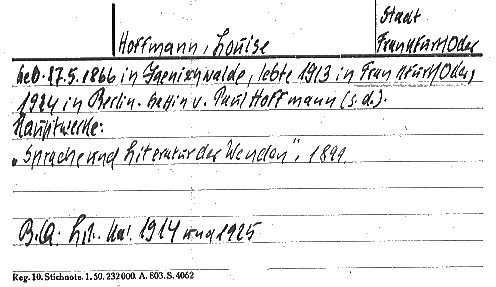 Hoffmann, Louise
Stadt
Frankfurt/Oder
geb. 17.5.1866 in Igenixwalde, lebte 1913 in Frankfurt/Oder,
1924 in Berlin. Gattin v. Paul Hoffmann (s.d.).
Hauptwerke:
„Sprache und Literatur der Wenden", 1899
B.Q: Lit. Kal. 1914 und 1925
Reg. 10. Stichnote. 1. 50. 232000. A. 803. S. 4062